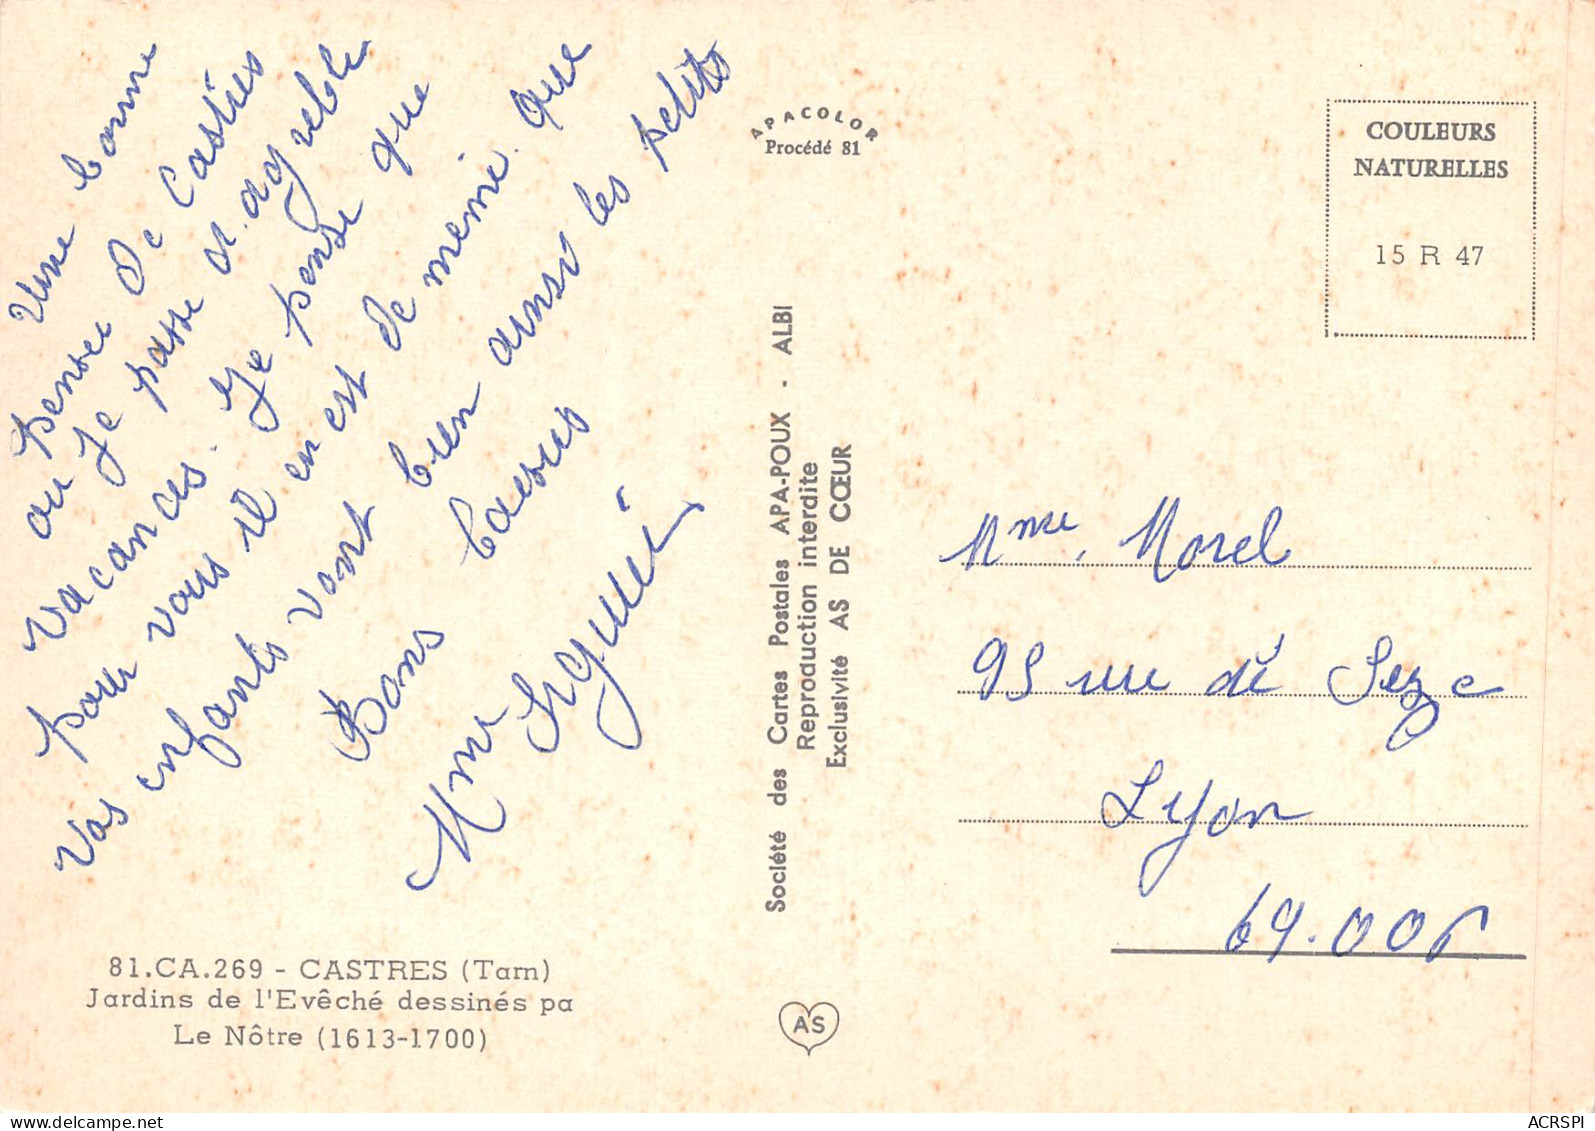 Une bonne
pensée de Castres
ou je passe d'agreable
vacances. Je pense que
pour vous il en est de meme. que
Vos enfants vont bien ainsi les petits
Bons baisers
Mme
APACOLOR
Procédé 81
COULEURS
NATURELLES
15 R 47
Société des Cartes Postales APA-POUX - ALBI
Reproduction interdite
Exclusivité AS DE CŒUR
Mme. Morel
95 rue de Seze
Lyon
69.006
81.CA.269 - CASTRES (Tarn)
Jardins de l'Evêché dessinés pa
Le Nôtre (1613-1700)
AS
delcampe.net
ACRSPI